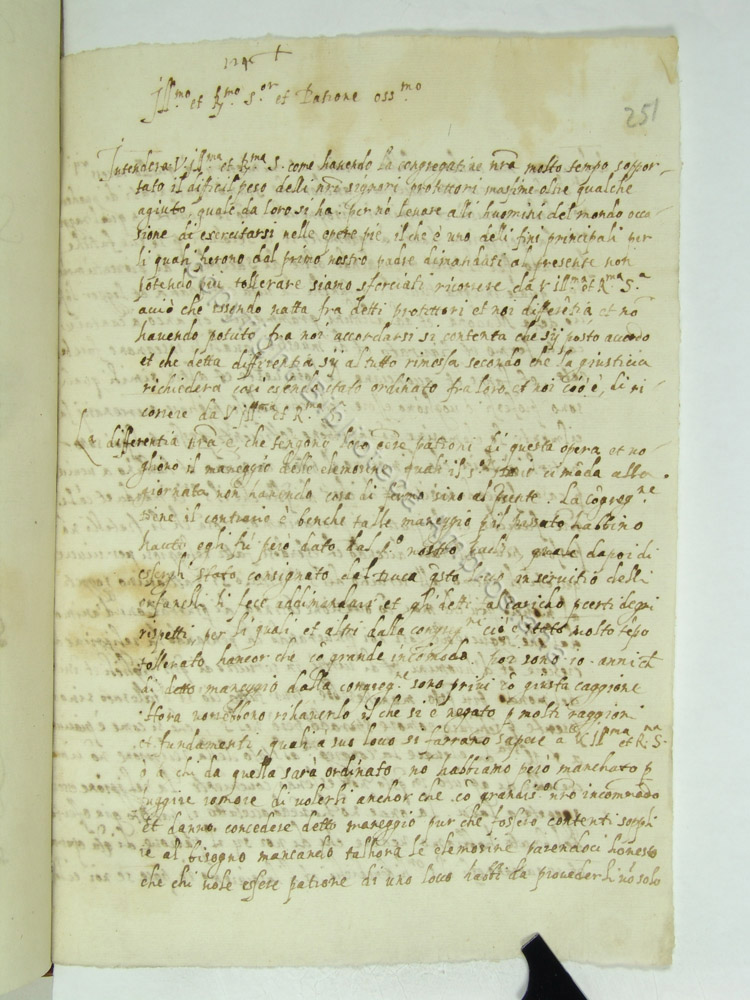 251
Ill.mo et R.mo S.or et Patrone oss.mo
Intenderà V. Ill.ma et R.ma S. come havendo la congregat.ne nrã molto tempo soppor-
tato il dificil peso delli nri signori protettori masime oltre qualche
agiuto, quale da loro si ha. per nõ levare alli huomini del mondo occa-
sione di esercitarsi nelle opere pie il che è uno delli fini principali per
li quali furono dal primo nostro padre dimandati al presente non
potendo più tollerare siamo sforciati ricorrere da V. Ill.ma et R.ma S.a
acciò che essendo natta fra detti protettori et noi differẽtia et nõ
havendo potuto fra noi accordarsi si contenta che sij posto accordo
et che detta differentia sij al tutto rimossa secondo che la giusticia
richiederà così essendo stato ordinato fra loro et noi cioè, di ri-
correre da V. Ill.ma et R.ma S.
La differentia nrã è, che tengono loro esere patroni di questa opera et vo-
gliono il maneggio delle elemosine quali il S.r ci mãda alla
giornata non havendo cosa di fermo sino al pñte. La cõgreg.ne
tiene il contrario è benche talle maneggio p il passato habbino
hauto egli fu però dato dal p.o nostro quale dapoi di
esserli stato consignato dal duca q̃sto loco in servitio delli
orfanelli li fece addimandare et gli detti al caricho p certi degni
rispetti per li quali et altri dalla congreg.ne ciò è stato molto tẽpo
tollerato hancor che cõ grande incomodo. hor sono 10 anni ch̃
di detto maneggio dalla congreg.ne sono privi cõ giusta caggione
Hora vorrebbono rihaverlo il che si è negato p molti raggioni
et fundamenti, quali a suo loco si farrano sapere a V. Ill.ma et R.ma S.
o a chi da quella sarà ordinato. nõ habbiamo però manchato p
fuggire romore di volerli anchor che cõ grandis.o nrõ incommodo
et danno concedere detto maneggio pur che fossero contenti sopplì
re al bisogno mancando talhora le elemosine parendoci honesto
che chi vole essere patrone di uno loco habbi da provederli nõ solo